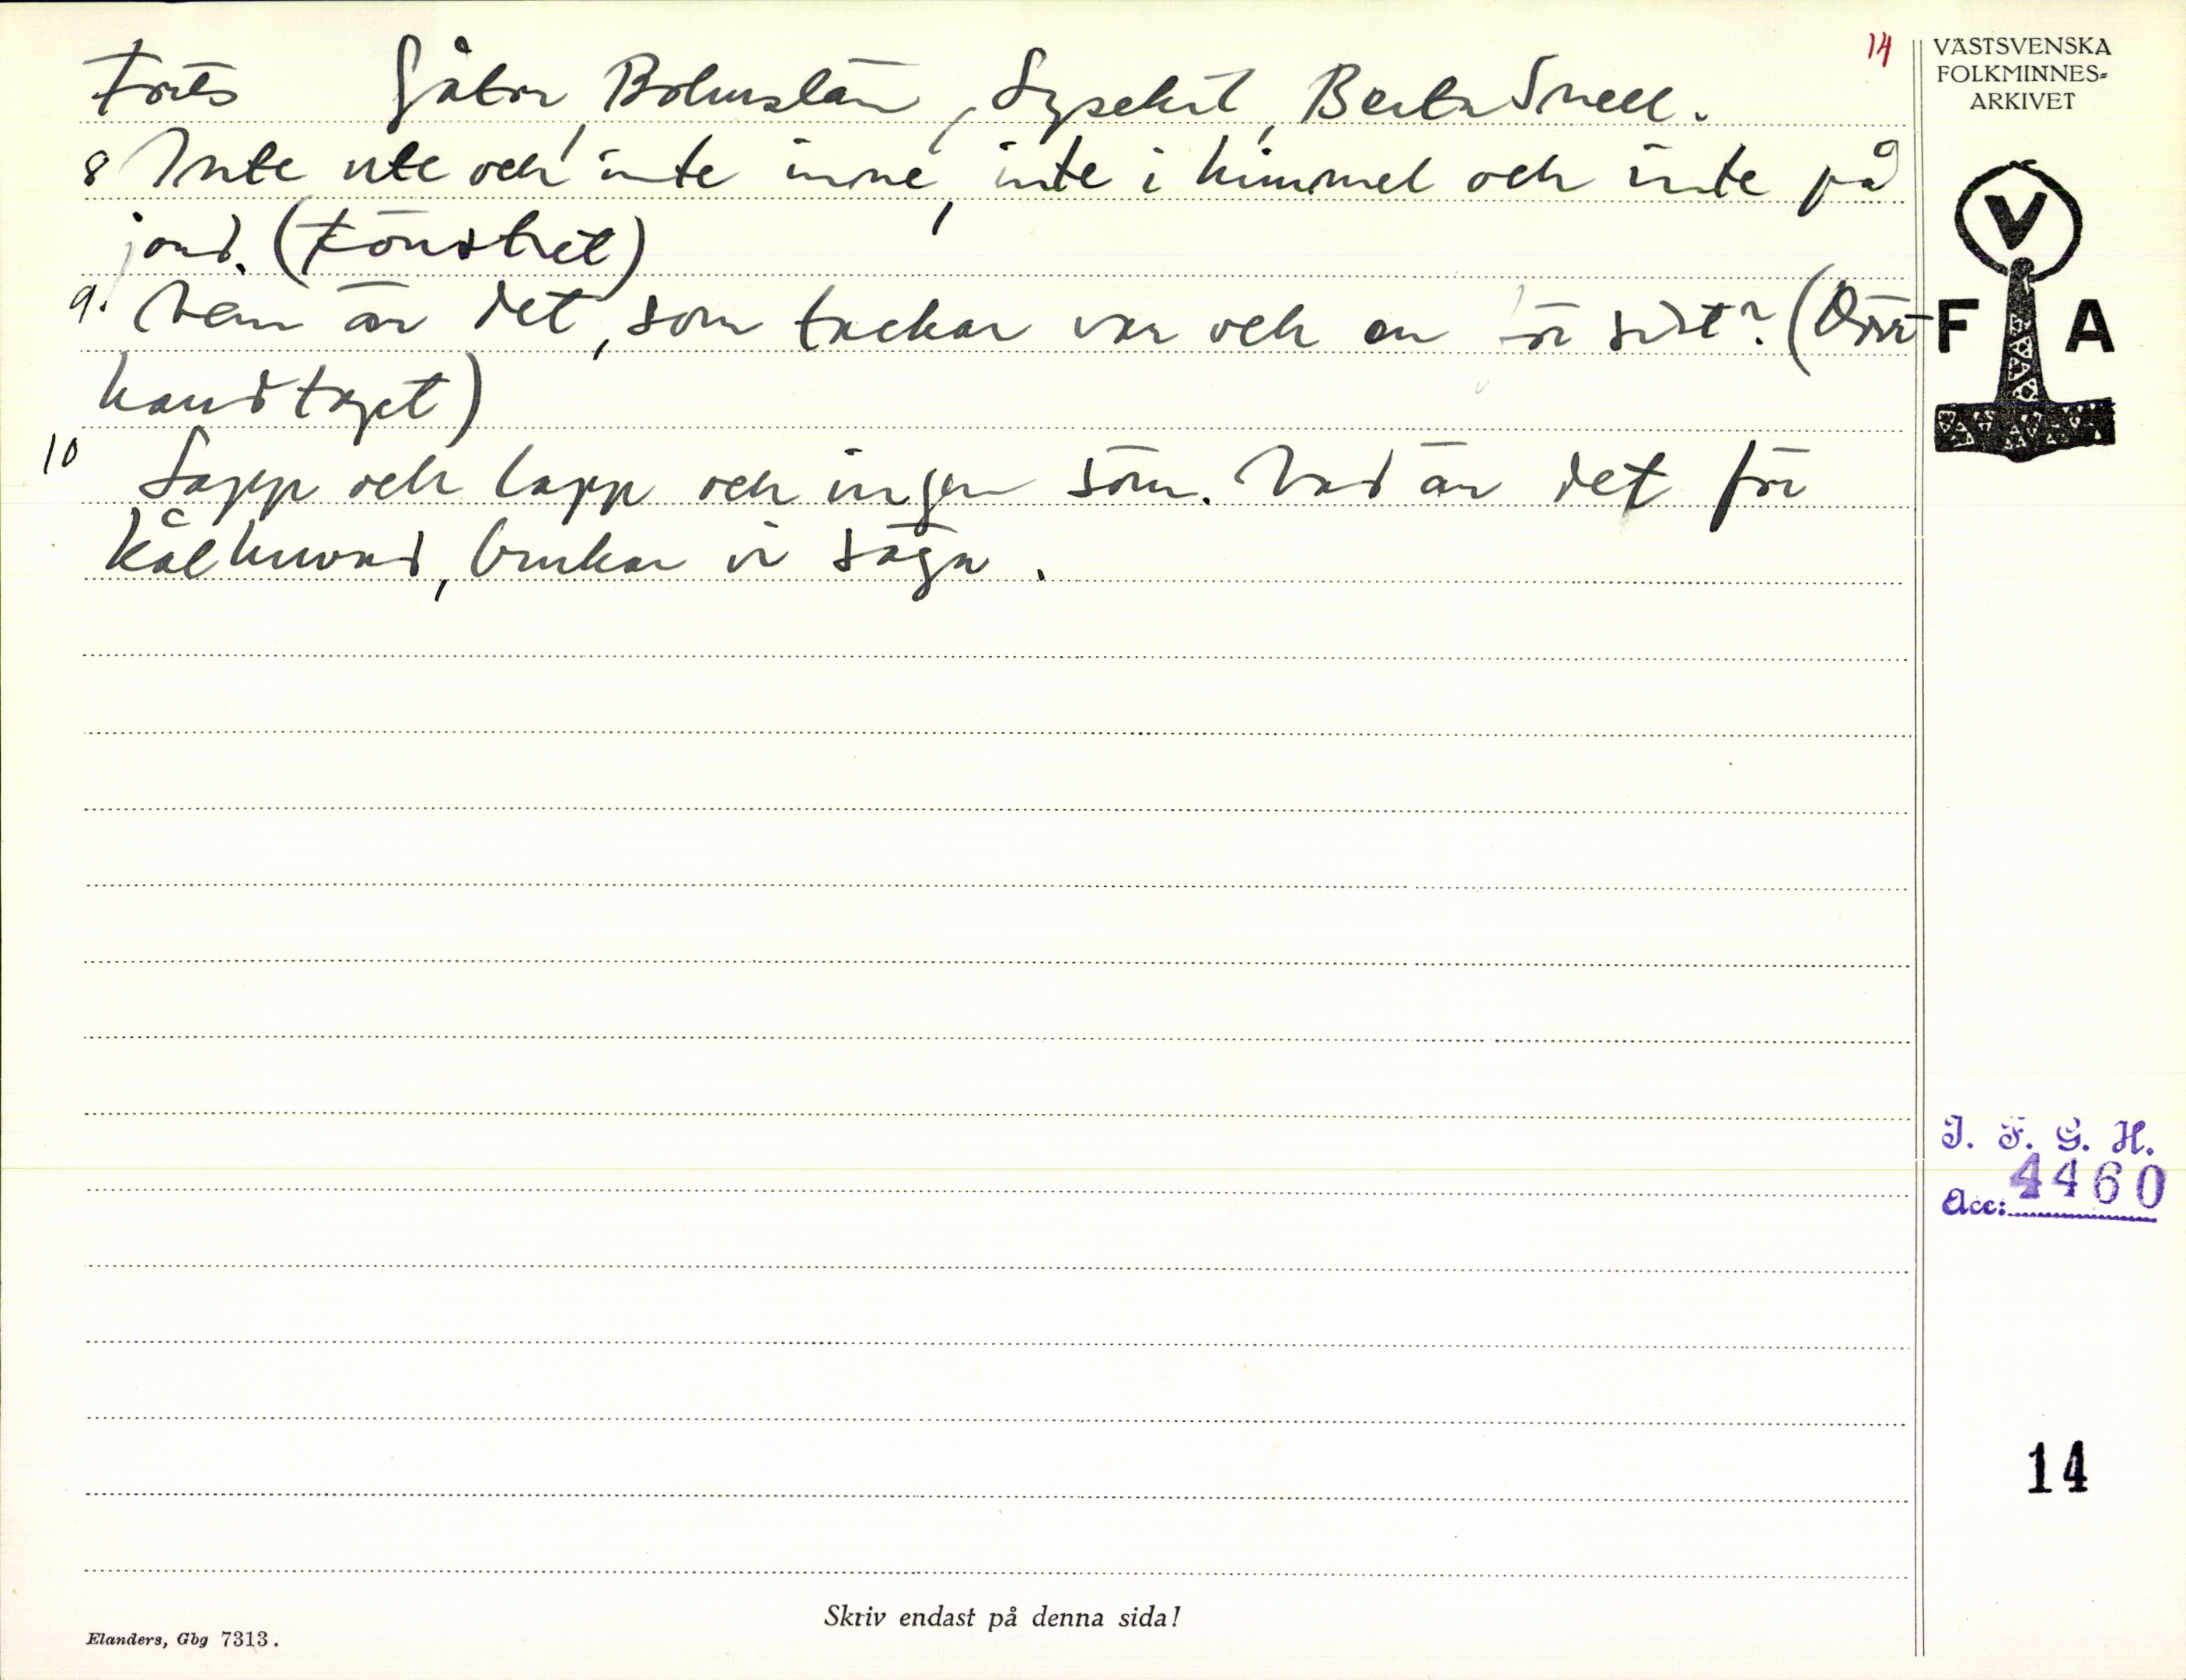 14
Forts Gåtor, Bohuslän, Lysekil, Berta Snell.
8 Inte ute och inte inne, inte i himmel och inte på
jord. (Fönstret)
9. Vem är det, som tackar var och en för sist? (Dörr-
handtaget)
10 Lapp och lapp och ingen söm. Vad är det för
kålhuvud, brukar vi säga.
VÄSTSVENSKA
FOLKMINNES-
ARKIVET
V
F A
I. F. G. H.
Acc: 4460
14
Skriv endast på denna sida!
Elanders, Gbg 7313.